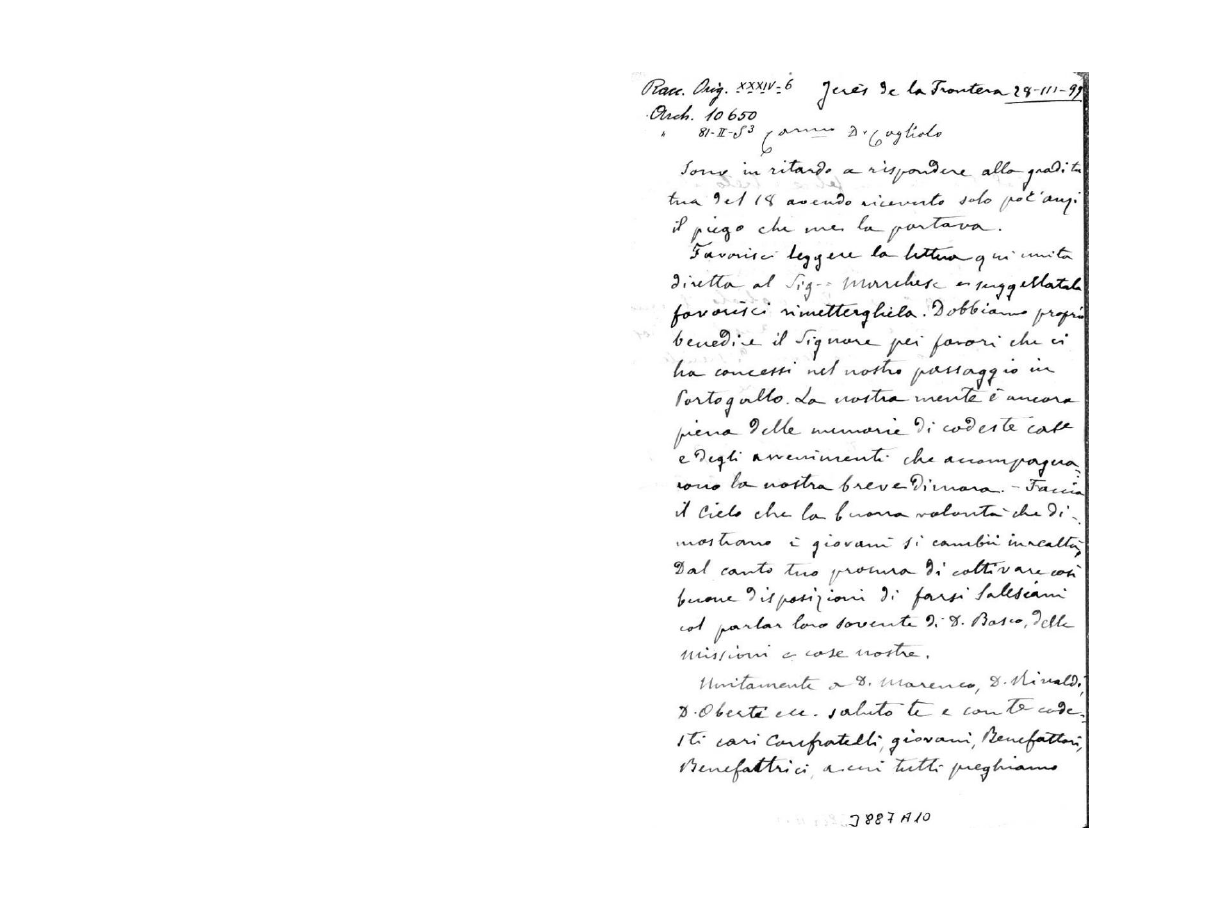 Racc. Orig. XXXIV-6 Jerés de la Frontera 28-III-99
Arch. 10650
" 81-II-53 Carmo D. Cogliolo
Sono in ritardo a rispondere alla gradita
tua del 18 avendo ricevuto solo poc'anzi
il piego che me la portava.
Favorisci leggere la lettera qui unita
diretta al Sig. Marchese e suggellatala
favorisci rimettergliela. Dobbiamo proprio
benedire il Signore pei favori che ci
ha concessi nel nostro passaggio in
Portogallo. La nostra mente è ancora
piena delle memorie di codeste case
e degli avvenimenti che accompagna-
rono la nostra breve dimora. - Faccia
il Cielo che la buona volontà che di-
mostrano i giovani si cambii in realtà,
Dal canto tuo procura di coltivare così
buone disposizioni di farsi Salesiani
col parlar loro sovente di D. Bosco, delle
Missioni e cose nostre.
Unitamente a D. Marenco, D. Rinaldi,
D. Oberti ecc. saluto te e con te code-
sti cari Confratelli, giovani, Benefattori,
Benefattrici, a cui tutti preghiamo
3887 A10